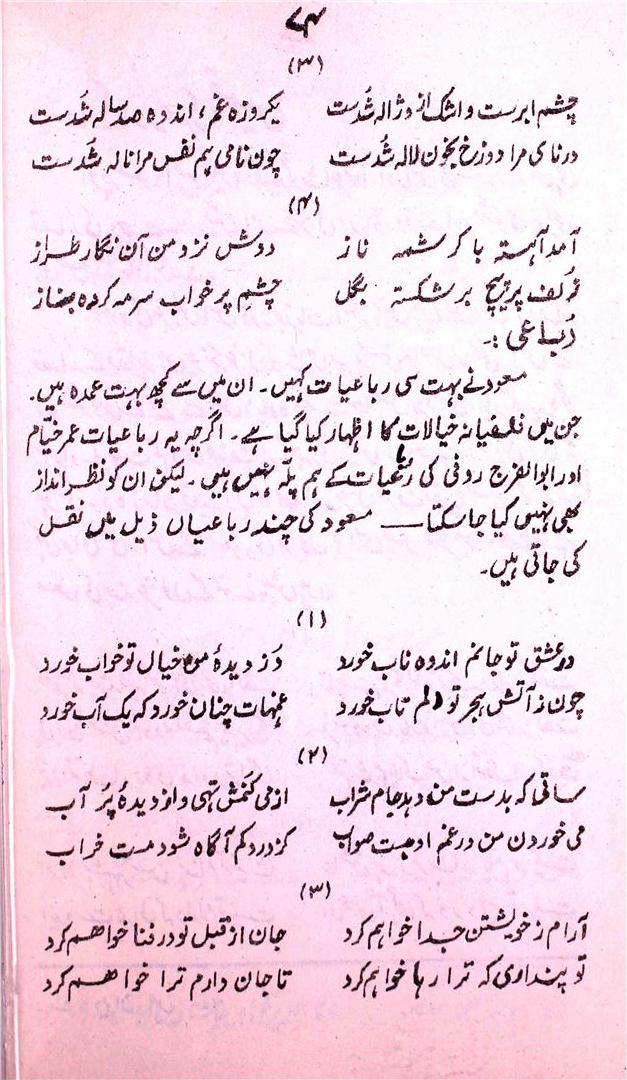 ۷۴
(۳)
چشم ابرست و اشک ازو ژاله شُدست یکروزہ غم، اندوه صد ساله شُدست
درنای مرا دوزخ بخون لاله شُدست چون نامی ہم نفس مرا ناله شُدست
(۴)
آمد آہستہ با کرشمہ ناز دوش نزد من آن نگار طراز
زُلف پرپیچ برشکستہ بگل چشمِ پر خواب سرمہ کردہ بغاز
رُباعی :۔
مسعود نے بہت سی رباعیات کہیں۔ ان میں سے کچھ بہت عمدہ ہیں۔
جن میں فلسفیانہ خیالات کا اظہار کیا گیا ہے۔ اگرچہ یہ رباعیات عمر خیّام
اور ابوالفرج رونی کی رباعیات کے ہم پلّہ نہیں ہیں۔ لیکن ان کو نظر انداز
بھی نہیں کیا جا سکتا — مسعود کی چند رباعیاں ذیل میں نقل
کی جاتی ہیں۔
(۱)
در عشق تو جانم اندوہ ناب خورد دُزدیدۂ من خیال تو خواب خورد
چون ز آتش ہجر تو دلم تاب خورد غمہات چنان خورد کہ یک آب خورد
(۲)
ساقی کہ بدست من دہد جام شراب از می کَنَمش تہی و از دیدہ پُر آب
می خوردن من در غم او ہست صواب کز دردکم آگاہ شود مست خراب
(۳)
آرام ز خویشتن جدا خواہم کرد جان از قبل تو در فنا خواهم کرد
تو پنداری کہ ترا رہا خواہم کرد تا جان دارم ترا خواهم کرد